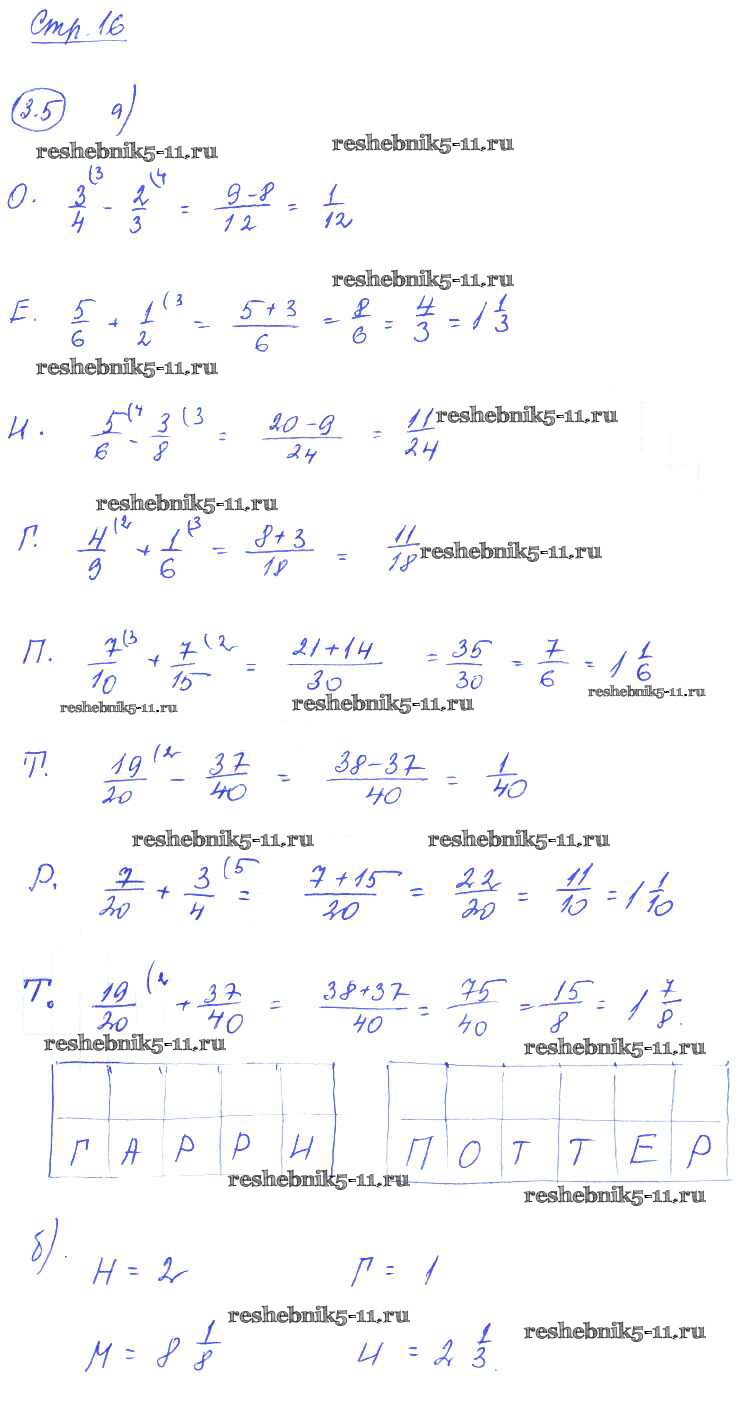 Стр. 16
3.5 а)
reshebnik5-11.ru reshebnik5-11.ru
О. 3/4 (3 - 2/3 (4 = 9-8/12 = 1/12
reshebnik5-11.ru
Е. 5/6 + 1/2 (3 = 5+3/6 = 8/6 = 4/3 = 1 1/3
reshebnik5-11.ru
И. 5/6 (4 - 3/8 (3 = 20-9/24 = 11/24 reshebnik5-11.ru
reshebnik5-11.ru
Г. 4/9 (2 + 1/6 (3 = 8+3/18 = 11/18 reshebnik5-11.ru
П. 7/10 (3 + 7/15 (2 = 21+14/30 = 35/30 = 7/6 = 1 1/6
reshebnik5-11.ru reshebnik5-11.ru reshebnik5-11.ru
Т. 19/20 (2 - 37/40 = 38-37/40 = 1/40
reshebnik5-11.ru reshebnik5-11.ru
Р. 7/20 + 3/4 (5 = 7+15/20 = 22/20 = 11/10 = 1 1/10
Т. 19/20 (2 + 37/40 = 38+37/40 = 75/40 = 15/8 = 1 7/8.
reshebnik5-11.ru reshebnik5-11.ru
Г А Р Р И П О Т Т Е Р
reshebnik5-11.ru reshebnik5-11.ru
б).
Н = 2 Г = 1
reshebnik5-11.ru reshebnik5-11.ru
М = 8 1/8 И = 2 1/3.